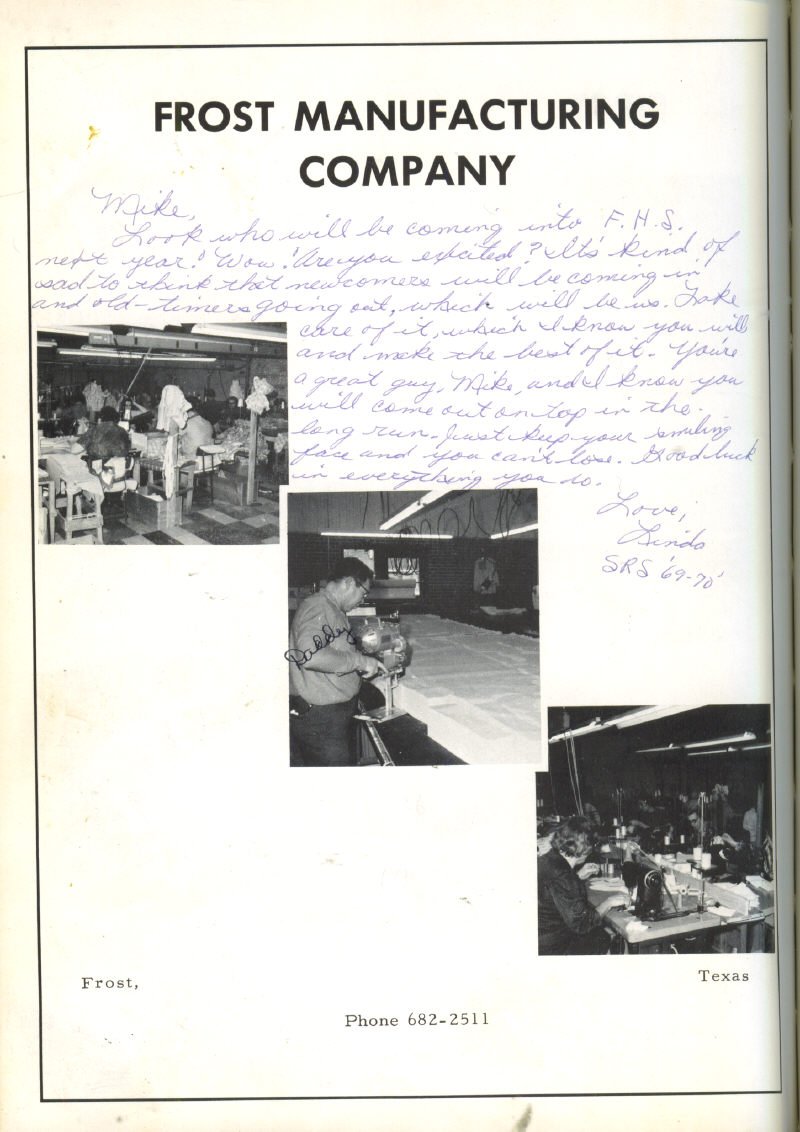 FROST MANUFACTURING
COMPANY
Mike,
Look who will be coming into F.H.S.
next year! Wow! Are you excited? It's kind of
sad to think that newcomers will be coming in
and old-timers going out, which will be us. Take
care of it, which I know you will
and make the best of it. You're
a great guy, Mike, and I know you
will come out on top in the
long run. Just keep your smiling
face and you can't lose. Good luck
in everything you do.
Love,
Linda
SRS '69-70'
Daddy
Frost,
Texas
Phone 682-2511